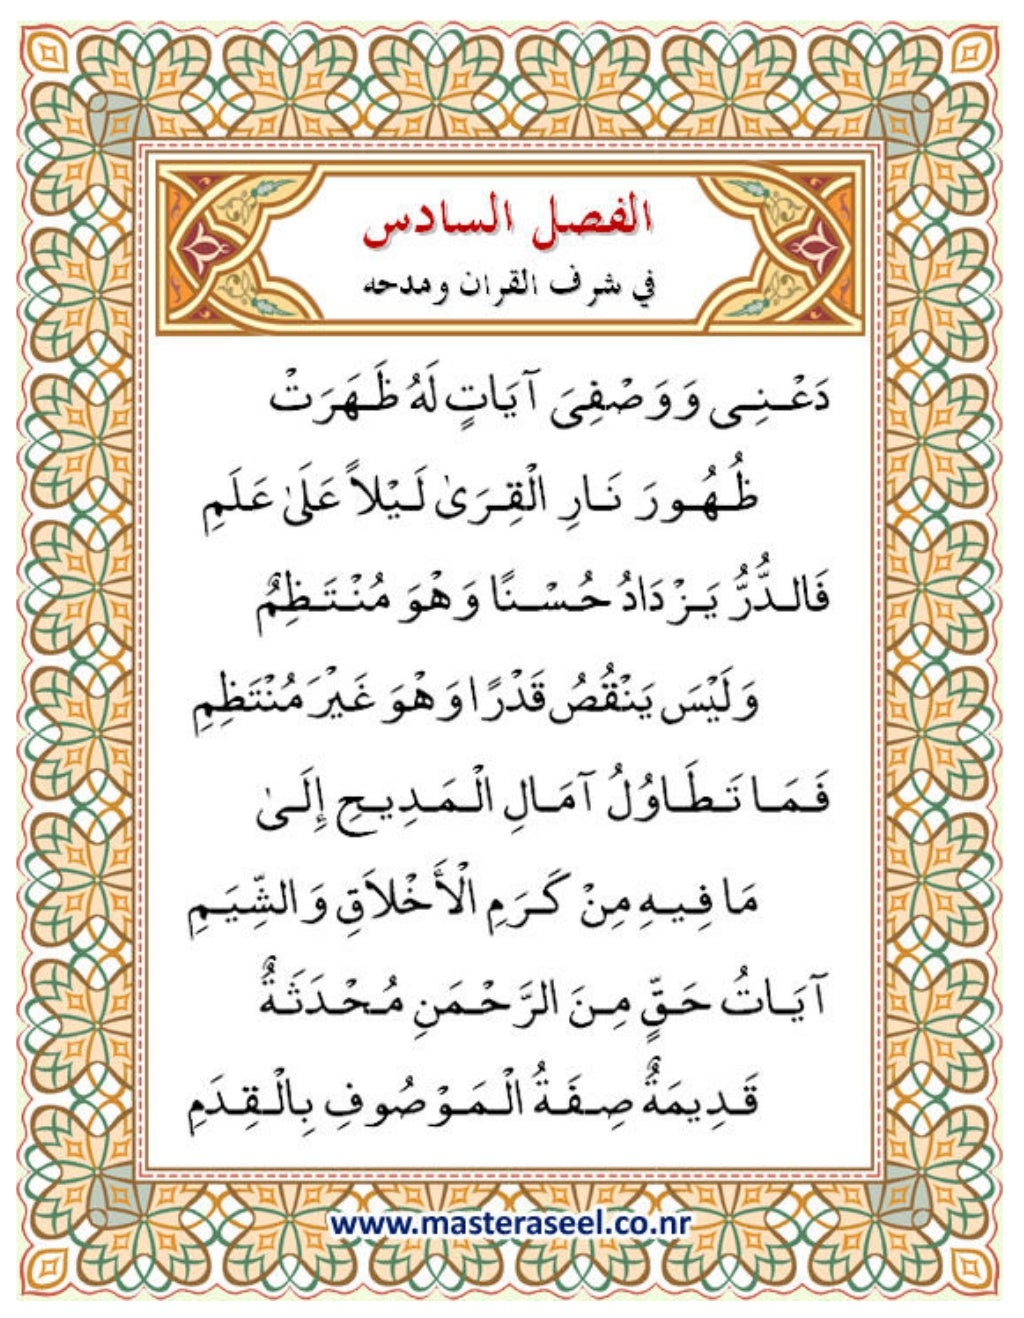 الفصل السادس
في شرف القران ومدحه
دَعْنِى وَوَصْفِىَ آيَاتٍ لَهُ ظَهَرَتْ
ظُهُورَ نَارِ الْقِرَىٰ لَيْلاً عَلَىٰ عَلَمِ
فَالدُّرُّ يَزْدَادُ حُسْنًا وَهْوَ مُنْتَظِمٌ
وَلَيْسَ يَنْقُصُ قَدْرًا وَهْوَ غَيْرَ مُنْتَظِمِ
فَمَا تَطَاوُلُ آمَالِ الْمَدِيحِ إِلَىٰ
مَا فِيهِ مِنْ كَرَمِ الْأَخْلاَقِ وَالشِّيَمِ
آيَاتُ حَقٍّ مِنَ الرَّحْمَنِ مُحْدَثَةٌ
قَدِيمَةٌ صِفَةُ الْمَوْصُوفِ بِالْقِدَمِ
www.masteraseel.co.nr